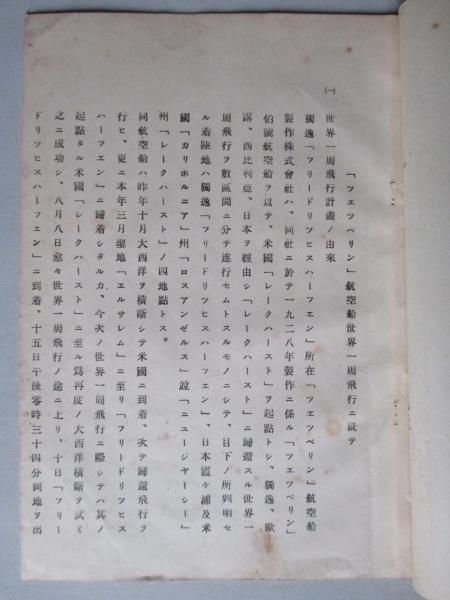 「ツエツペリン」航空船世界一周飛行ニ就テ
(一) 世界一周飛行計畫ノ由來
獨逸「フリードリツヒスハーフエン」所在「ツエツペリン」航空船
製作株式會社ハ、同社ニ於テ一九二八年製作ニ係ル「ツエツペリン」
伯號航空船ヲ以テ、米國「レークハースト」ヲ起點トシ、獨逸、歐
露、西比利亞、日本ヲ經由シ「レークハースト」ニ歸還スル世界一
周飛行ヲ數區間ニ分チ遂行セムトスルモノニシテ、目下ノ所判明セ
ル着陸地ハ獨逸「フリードリツヒスハーフエン」、日本霞ケ浦及米
國「カリホルニア」州「ロスアンゼルス」竝「ニユージヤーシー」
州「レークハースト」ノ四地點トス。
同航空船ハ昨年十月大西洋ヲ横斷シテ米國ニ到着、次テ歸還飛行ヲ
行ヒ、更ニ本年三月聖地「エルサレム」ニ至リ「フリードリツヒス
ハーフエン」ニ歸着シタルカ、今次ノ世界一周飛行ニ際シテハ其ノ
起點タル米國「レークハースト」ニ至ル爲再度ノ大西洋横斷ヲ試ミ
之ニ成功シ、八月八日愈々世界一周飛行ノ途ニ上リ、十日「フリー
ドリツヒスハーフエン」ニ到着、十五日午後零時三十四分同地ヲ出